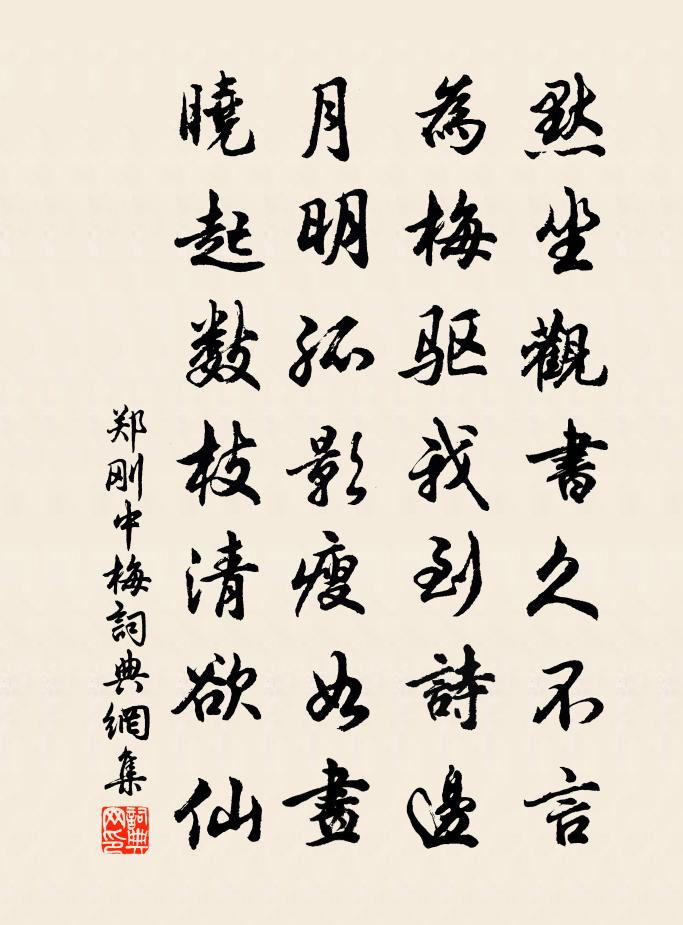 默坐觀書久不言
為梅驱我到詩邊
月明孤影瘦如畫
曉起數枝清欲仙
郑刚中梅詞典網集
詞典网印